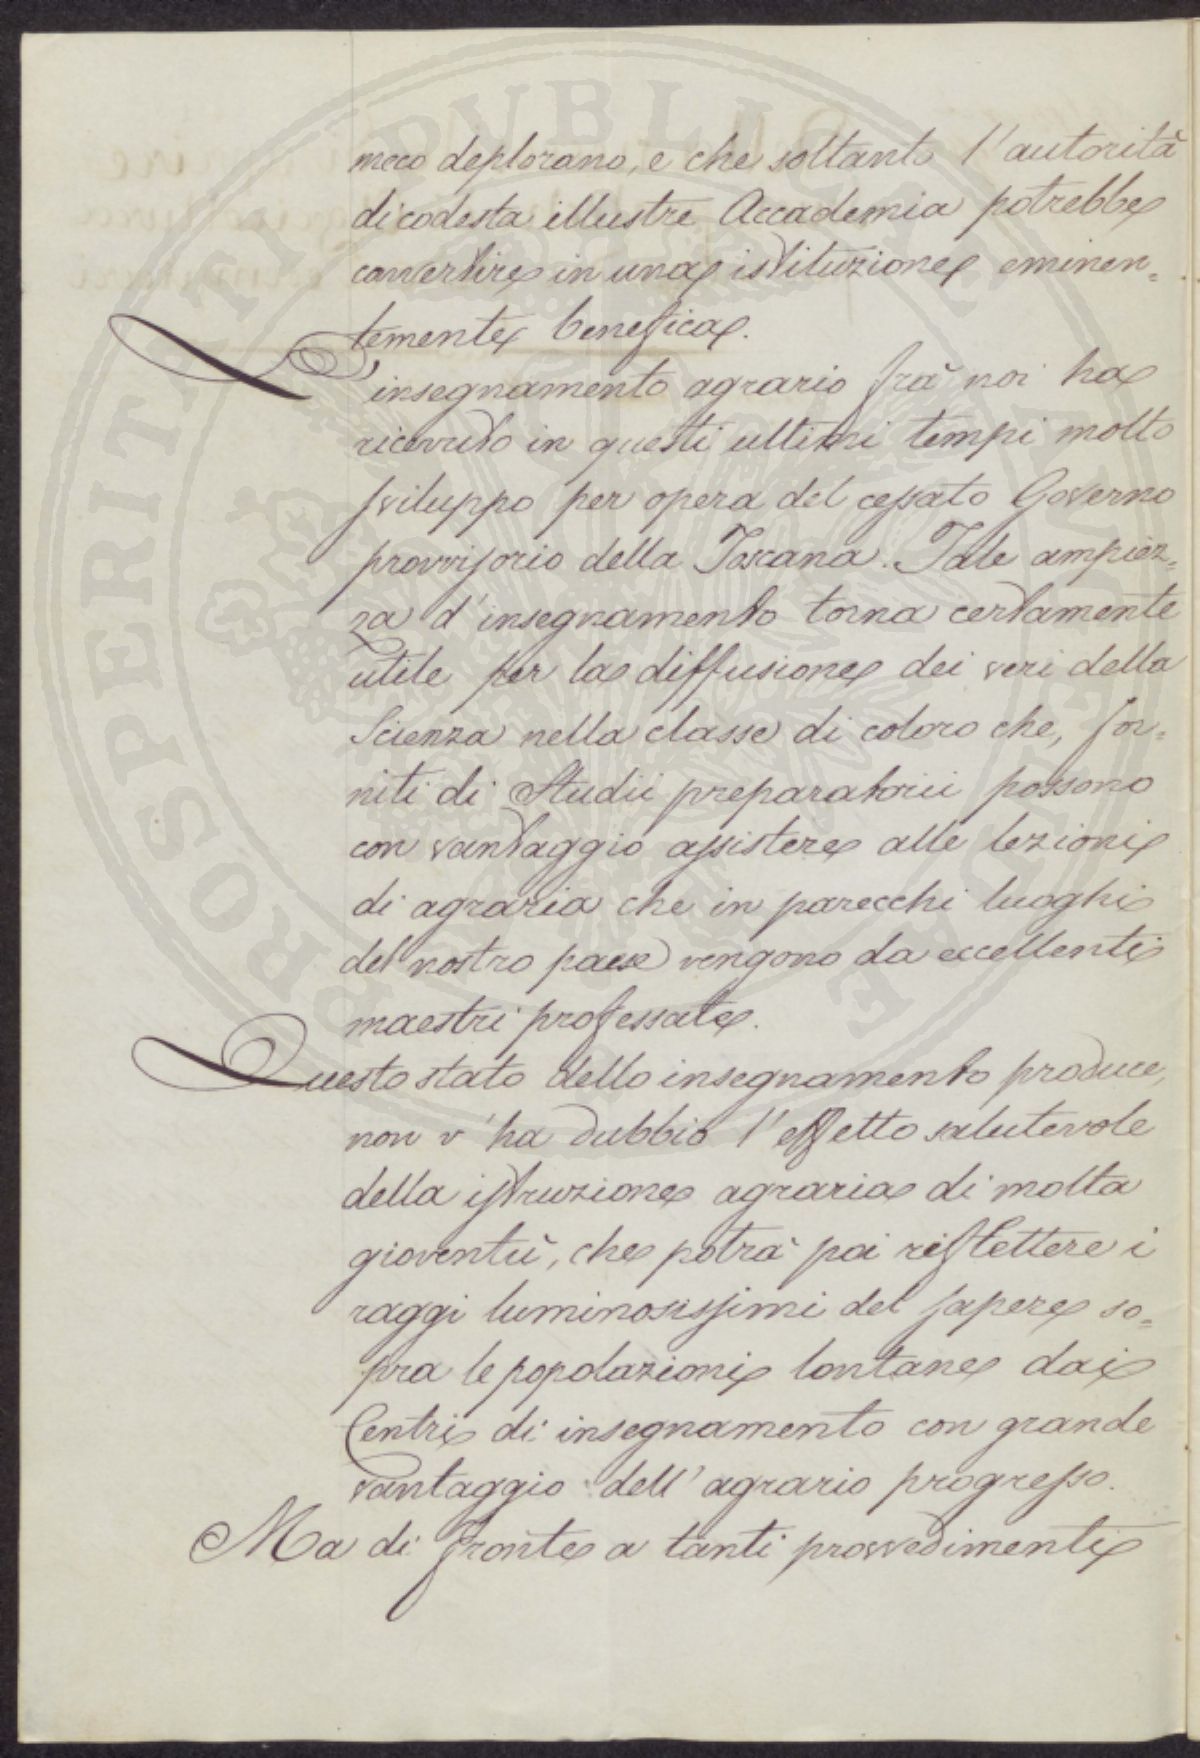 meco deplorano, e che soltanto l'autorità
di codesta illustre Accademia potrebbe
convertire in una istituzione eminen=
temente benefica.
L'insegnamento agrario frà noi ha
ricevuto in questi ultimi tempi molto
sviluppo per opera del cessato Governo
provvisorio della Toscana. Tale ampiez=
za d'insegnamento torna certamente
utile per la diffusione dei veri della
Scienza nella classe di coloro che, for=
niti di Studii preparatorii possono
con vantaggio assistere alle lezioni
di agraria che in parecchi luoghi
del nostro paese vengono da eccellenti
maestri professate.
Questo stato dello insegnamento produce,
non v'ha dubbio l'effetto salutevole
della istruzione agraria di molta
gioventù, che potrà poi riflettere i
raggi luminosissimi del sapere so=
pra le popolazioni lontane dai
Centri di insegnamento con grande
vantaggio dell'agrario progresso.
Ma di fronte a tanti provvedimenti
PROSPERITATI PUBLICAE AUGENDAE